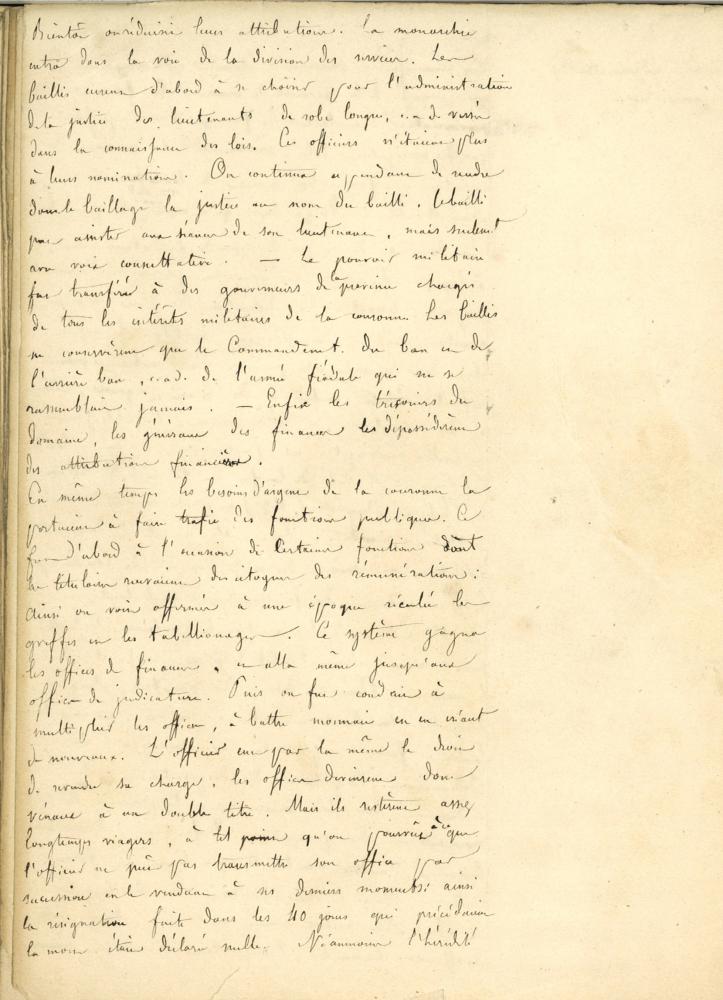 Bientôt on réduisit leurs attributions. La monarchie
entra dans la voie de la division des services. Les
baillis eurent d'abord à se choisir pour l'administration
de la justice des lieutenants de robe longue, c.a.d. versés
dans la connaissance des lois. Ces officiers n'étaient plus
à leurs nominations. On continua cependant de rendre
dans le baillage la justice au nom du bailli. Le bailli
put assister aux séances de son lieutenant, mais seulement
avec voix consultative. — Le pouvoir militaire
fut transféré à des gouverneurs de la province chargés
de tous les intérêts militaires de la couronne. Les baillis
ne conservèrent que le Commandement du ban et de
l'arrière ban, c.a.d. de l'armée féodale qui ne se
rassemblait jamais. — Enfin les trésoriers du
domaine, les généraux des finances les dépossédèrent
des attributions financières.
En même temps les besoins d'argent de la couronne la
portèrent à faire trafic des fonctions publiques. Ce
fut d'abord à l'occasion de certaines fonctions dont
les titulaires recevaient des citoyens des rémunérations :
ainsi on voit affermés à une époque reculée les
greffes et les tabellionages. Ce système gagna
les offices de finances, et alla même jusqu'aux
offices de judicature. Puis on fut conduit à
multiplier les offices, à battre monnaie en en créant
de nouveaux. L'officier eut par la même le droit
de revendre sa charge, les offices devinrent donc
vénaux à un double titre. Mais ils restèrent assez
longtemps viagers, à tel point qu'on pourvût à ce que
l'officier ne pût pas transmettre son office par
succession en le vendant à ses derniers moments : ainsi
la résignation faite dans les 40 jours qui précédaient
la mort était déclarée nulle. Néanmoins l'hérédité